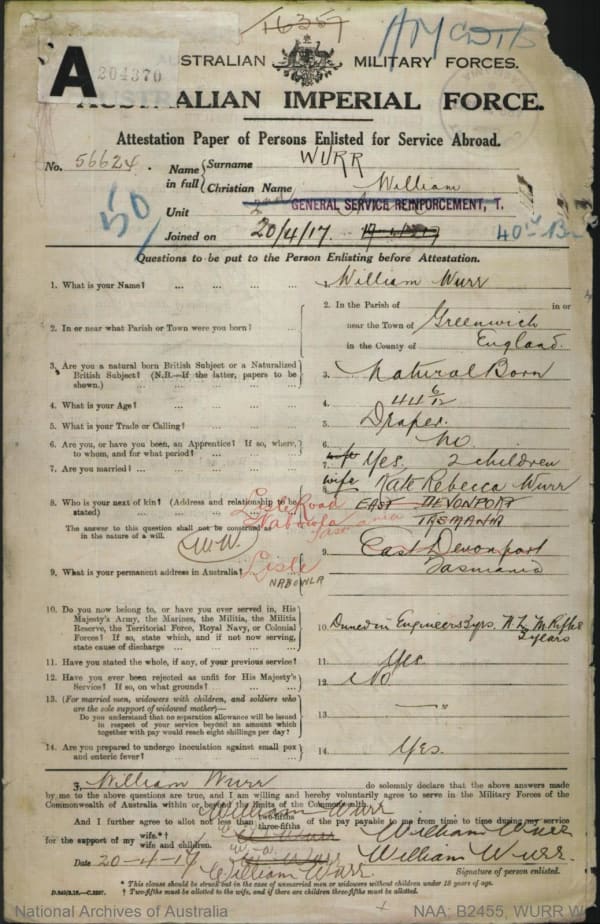 16357
AMC Dtls
A 204370
AUSTRALIAN MILITARY FORCES.
AUSTRALIAN IMPERIAL FORCE.
Attestation Paper of Persons Enlisted for Service Abroad.
No. 56624. Name in full Surname WURR
Christian Name William
50
Unit GENERAL SERVICE REINFORCEMENT, T.
Joined on 20/4/17. 40th Bn
Questions to be put to the Person Enlisting before Attestation.
1. What is your Name? ... ... ... ... William Wurr
2. In or near what Parish or Town were you born? ... 2. In the Parish of in or
near the Town of Greenwich
in the County of England.
3. Are you a natural born British Subject or a Naturalized British Subject? (N.B.—If the latter, papers to be shown.) ... ... 3. Natural Born
4. What is your Age? ... ... ... ... 4. 44 6/12
5. What is your Trade or Calling? ... ... ... 5. Draper.
6. Are you, or have you been, an Apprentice? If so, where, to whom, and for what period? ... ... 6. No
7. Are you married? ... ... ... ... 7. Yes. 2 children
8. Who is your next of kin? (Address and relationship to be stated) ... wife Kate Rebecca Wurr
EAST DEVONPORT
TASMANIA
Lisle Road
Nabowla
Tasmania
The answer to this question shall not be construed as in the nature of a will.
W.W.
9. What is your permanent address in Australia? 9. East Devonport
Tasmania
Lisle
NABOWLA
10. Do you now belong to, or have you ever served in, His Majesty's Army, the Marines, the Militia, the Militia Reserve, the Territorial Force, Royal Navy, or Colonial Forces? If so, state which, and if not now serving, state cause of discharge ... ... ... 10. Dunedin Engineers 3 yrs. N.Z. M Rifles
3 years
11. Have you stated the whole, if any, of your previous service? 11. Yes
12. Have you ever been rejected as unfit for His Majesty's Service? If so, on what grounds? ... ... 12. No
13. (For married men, widowers with children, and soldiers who are the sole support of widowed mother)—
Do you understand that no separation allowance will be issued in respect of your service beyond an amount which together with pay would reach eight shillings per day? 13. — " —
14. Are you prepared to undergo inoculation against small pox and enteric fever? ... ... ... 14. Yes.
I, William Wurr do solemnly declare that the above answers made
by me to the above questions are true, and I am willing and hereby voluntarily agree to serve in the Military Forces of the
Commonwealth of Australia within or beyond the limits of the Commonwealth.
William Wurr
And I further agree to allot not less than two-fifths three-fifths of the pay payable to me from time to time during my service
for the support of my wife.*† wife and children. William Wurr
W. Wurr
Date 20-4-17 William Wurr.
William Wurr Signature of person enlisted.
* This clause should be struck out in the case of unmarried men or widowers without children under 18 years of age.
† Two-fifths must be allotted to the wife, and if there are children three-fifths must be allotted.
National Archives of Australia NAA: B2455, WURR W